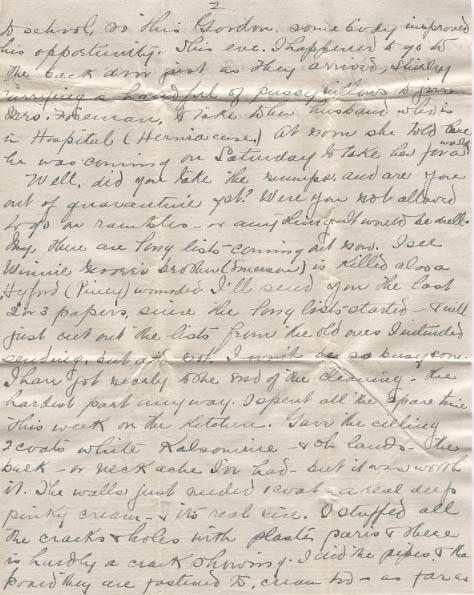 2
to school, so this Gordon. somebody improved
his opportunity. This eve. I happened to go to
the back door just as they arrived, Shirley
carrying a handful of pussy willows to give
Mrs. Freeman, to take to her husband who is
in Hospital (Hernia case.) At noon she told here
he was coming on Saturday to take her for a walk
Well, did you take the mumps, and are you
out of quarantine yet? Were you not allowed
to go on rambles - or anything - It would be dull.
My, there are long lists - coming out now. I see
Winnie brother (Emerson) is killed also a
Hyford (Piney) wounded. I'll send you the last
2 or 3 papers, since the long lists started - & will
just cut out the lists from the old ones I intended
sending, but did not. I won't be so busy soon.
I have got nearly to the end of the cleaning - the
hardest part anyway. I spent all the spare time
this week on the kitchen. Gave the ceiling
2 coats white Kalsomine - & oh lands - the
back - or neck ache I've had - but it was worth
it. The walls just needed 1 coat - a real deep
pinky cream - & it's real nice. I stuffed all
the cracks & holes with plaster paris & there
is hardly a crack showing. I did the pipes & the
board they are fastened to, cream too - as far as